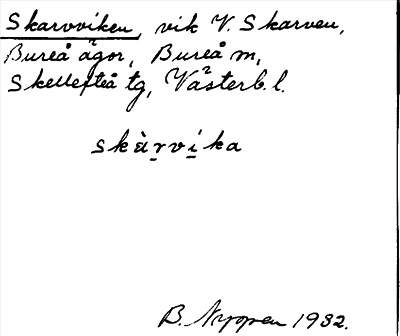 Skarvviken, vik V. Skarven,
Bureå ägor, Bureå sn,
Skellefteå tg, Västerb. l.
skàr̠vi̠ka
B. Nygren 1932.